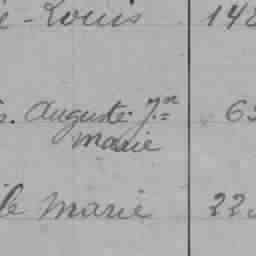 -Louis 148
s. Auguste. J.n
marie 63
le Marie 22